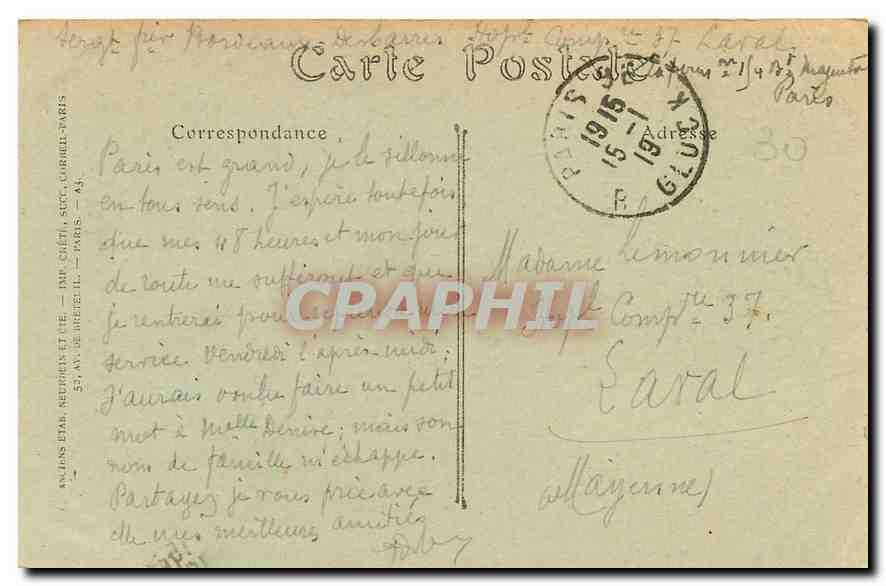 Sergt fer Bordeaux Desbarres Hopt Compre 37 Laval
Carte Postale
Paris
Correspondance
Adresse
PARIS
GLUCK
1915
15 -1
19
B
30
Paris est grand, je le sillonne
en tous sens. J'espère toutefois
que mes 48 heures et mon jour
de route me suffiront et que
je rentrerai pour
service Vendredi l'après-midi.
J'aurais voulu faire un petit
mot à Melle Denise; mais son
nom de famille m'échappe.
Partagez je vous prie avec
elle mes meilleures amitiés
Madame Lemonnier
Hopt Compre 37
Laval
(Mayenne)
ANCIENS ETAB. NEURDEIN ET CIE. — IMP. CRÉTÉ, SUCC. CORBEIL-PARIS
52, AV. DE BRETEUIL. — PARIS. — A3.
CPAPHIL